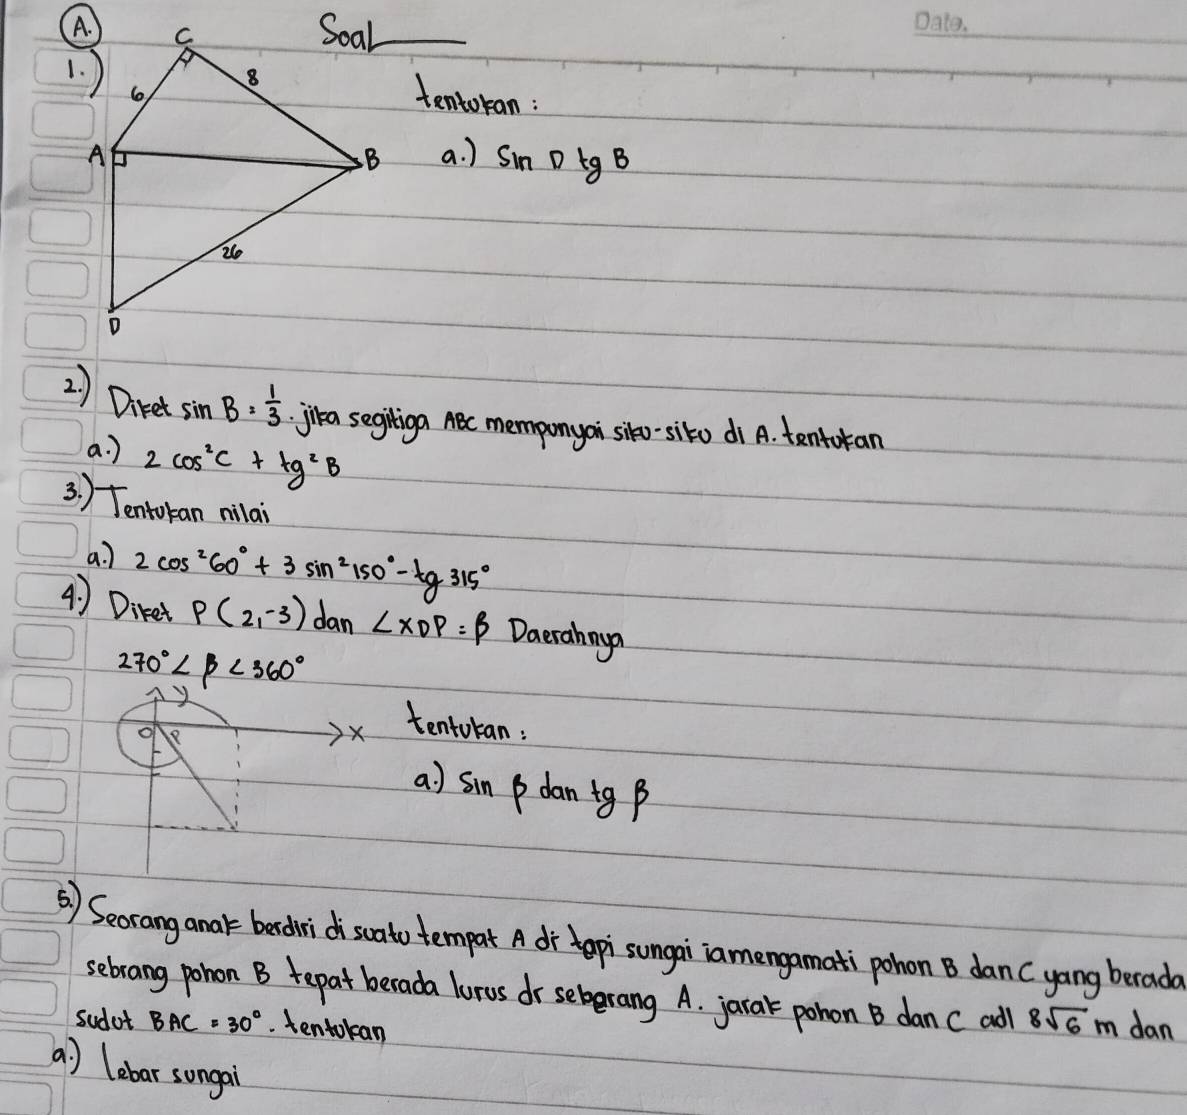 A.
Soal
Date.
1.)
C
6
8
A
B
26
D
tentukan :
a.) Sin D tg B
2.) Diket sin B = 1/3. jika segitiga ABC mempunyai siku-siku di A. tentukan
a.) 2 cos²C + tg²B
3.) Tentukan nilai
a.) 2 cos²60° + 3 sin²150° - tg 315°
4.) Diket P (2,-3) dan ∠XOP = β Daerahnya
270° < β < 360°
y
O
P
X
tentukan :
a.) Sin β dan tg β
5.) Seorang anak berdiri di suatu tempat A di tepi sungai ia mengamati pohon B dan C yang berada
sebrang pohon B tepat berada lurus dr seberang A. jarak pohon B dan C adl 8√6 m dan
sudut BAC = 30°. tentukan
a.) lebar sungai